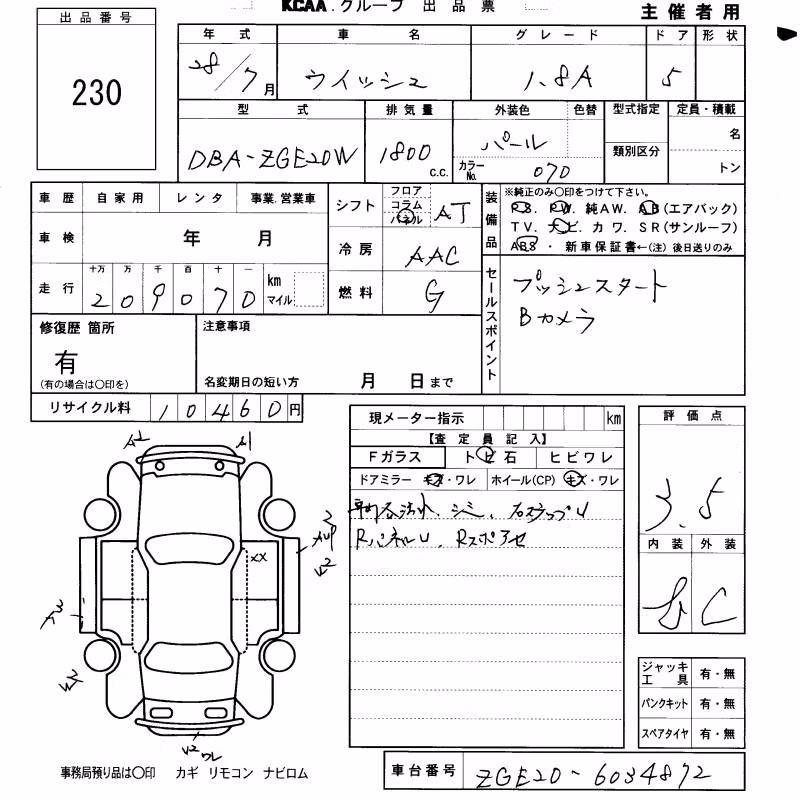 KCAA.グループ 出品票
主催者用
出品番号
230
年式 車名 グレード ドア 形状
28/7月 ウイッシュ 1.8A 5
型式 排気量 外装色 色替 型式指定 定員・積載
DBA-ZGE20W 1800 c.c. パール 名
カラーNo. 070 類別区分 トン
車歴 自家用 レンタ 事業.営業車
シフト フロア コラム パネル AT
装備品
※純正のみ○印をつけて下さい。
P.S. P.W. 純AW. AB(エアバック)
TV. ナビ カワ. SR(サンルーフ)
ABS・新車保証書←(注)後日送りのみ
車検 年 月
冷房 AAC
走行 十万 万 千 百 十 一
209070 km マイル
燃料 G
セールスポイント
プッシュスタート
Bカメラ
修復歴 箇所
有
(有の場合は○印を)
注意事項
名変期日の短い方 月 日まで
リサイクル料 10460円
現メーター指示 km
【査定員記入】
Fガラス トビ石 ヒビワレ
ドアミラー キズ・ワレ ホイール(CP) キズ・ワレ
シミ、右ステップU
RパネルU、Rスポアセ
評価点
3.5
内装 外装
C
A2
A1
XX
2
V2
V2
V2 ワレ
ジャッキ 工具 有・無
パンクキット 有・無
スペアタイヤ 有・無
事務局預り品は○印 カギ リモコン ナビロム
車台番号 ZGE20-6034872